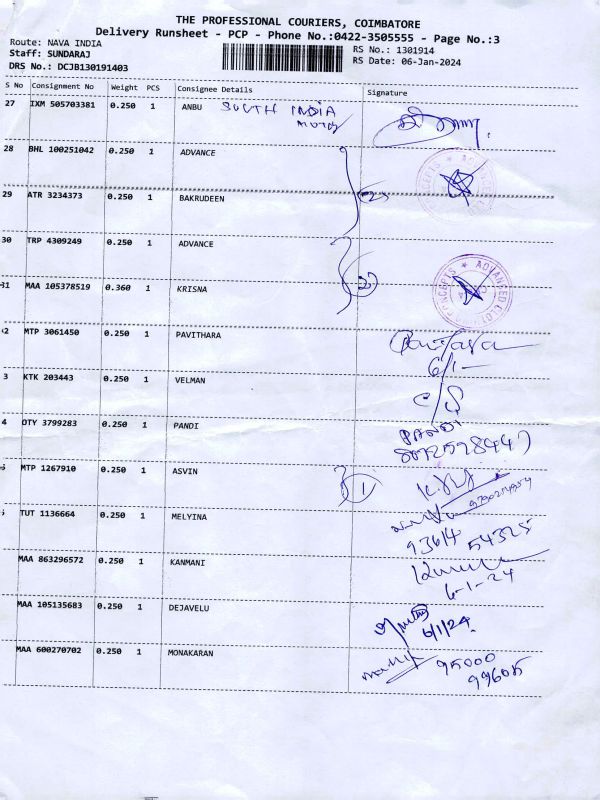 THE PROFESSIONAL COURIERS, COIMBATORE
Delivery Runsheet - PCP - Phone No.:0422-3505555 - Page No.:3
Route: NAVA INDIA
RS No.: 1301914
Staff: SUNDARAJ
RS Date: 06-Jan-2024
DRS No.: DCJB130191403
S No Consignment No Weight PCS Consignee Details Signature
27 IXM 505703381 0.250 1 ANBU SOUTH INDIA
28 BHL 100251042 0.250 1 ADVANCE
29 ATR 3234373 0.250 1 BAKRUDEEN 2
30 TRP 4309249 0.250 1 ADVANCE
31 MAA 105378519 0.360 1 KRISNA 2
ADVANCED CONCEPTS
2 MTP 3061450 0.250 1 PAVITHARA
6/1-
3 KTK 203443 0.250 1 VELMAN
4 OTY 3799283 0.250 1 PANDI PANDI
MTP 1267910 0.250 1 ASVIN 1
TUT 1136664 0.250 1 MELYINA
93614 54325
MAA 863296572 0.250 1 KANMANI
6-1-24
MAA 105135683 0.250 1 DEJAVELU
6/1/24
MAA 600270702 0.250 1 MONAKARAN 95000
99605